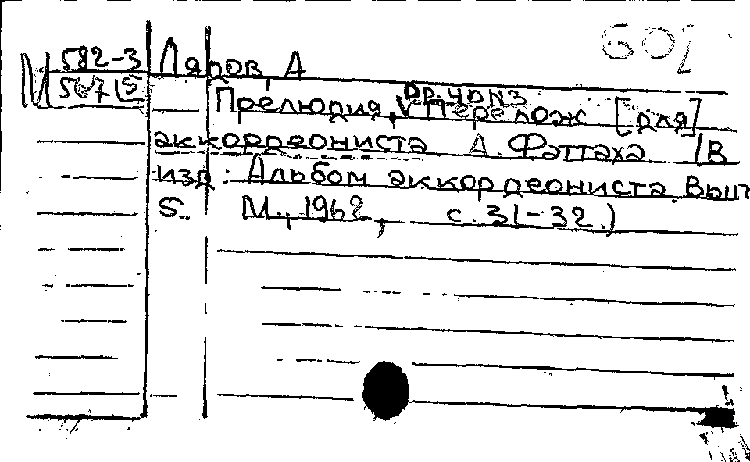 М 582-3
567/5
Ляров, А
Прелюдия, Перелож [для]
аккордеониста А. Фаттаха (В
изд: Альбом аккордеониста. Вып
5. М., 1962, с. 31-32.)